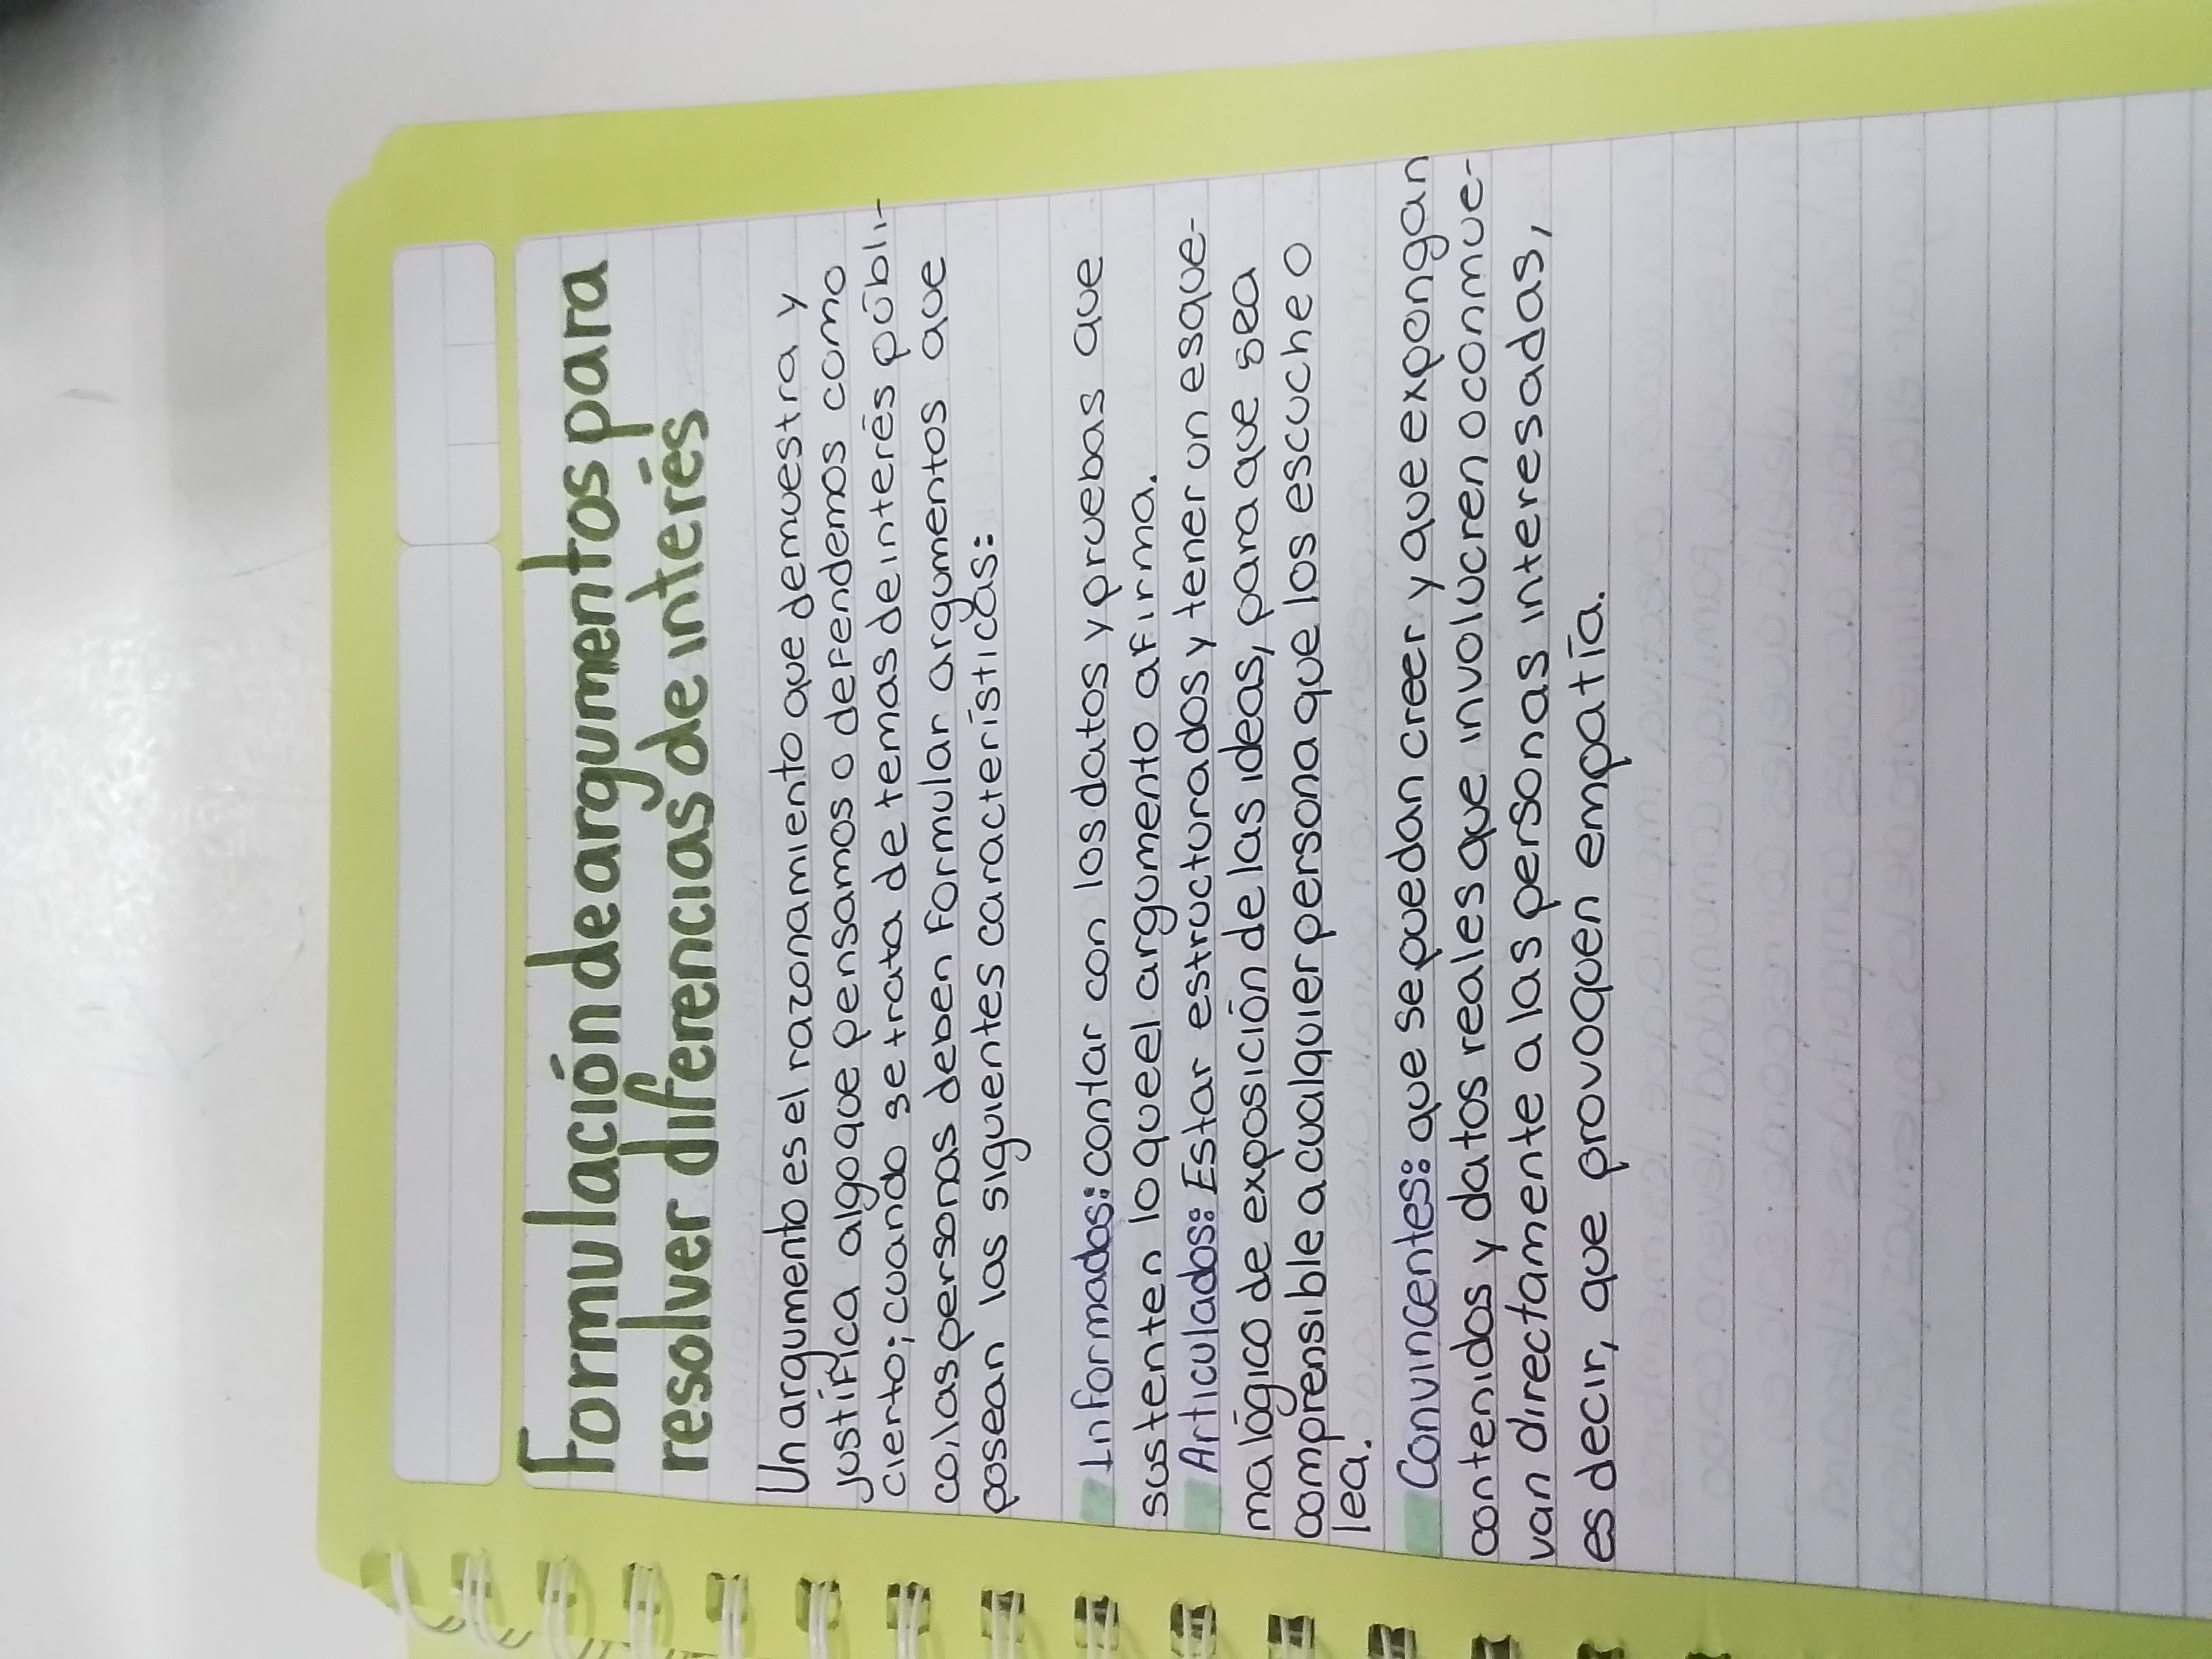 Formulación de argumentos para
resolver diferencias de interés
Un argumento es el razonamiento que demuestra y
justifica algo que pensamos o defendemos como
cierto; cuando se trata de temas de interés públi-
co, las personas deben formular argumentos que
posean las siguientes características:
Informados: contar con los datos y pruebas que
sustenten lo que el argumento afirma.
Articulados: Estar estructurados y tener un esque-
ma lógico de exposición de las ideas, para que sea
comprensible a cualquier persona que los escuche o
lea.
Convincentes: que se puedan creer y que expongan
contenidos y datos reales que involucren o conmue-
van directamente a las personas interesadas,
es decir, que provoquen empatía.